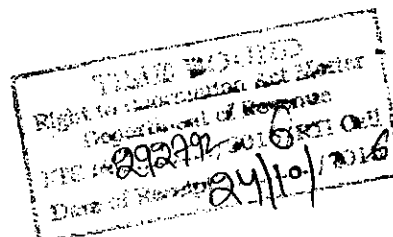 TIME BOUND
Right to Information Act Matter
Department of Revenue
FTS No. 292792/2016 RTI Cell
Date of Receipt 24/10/2016